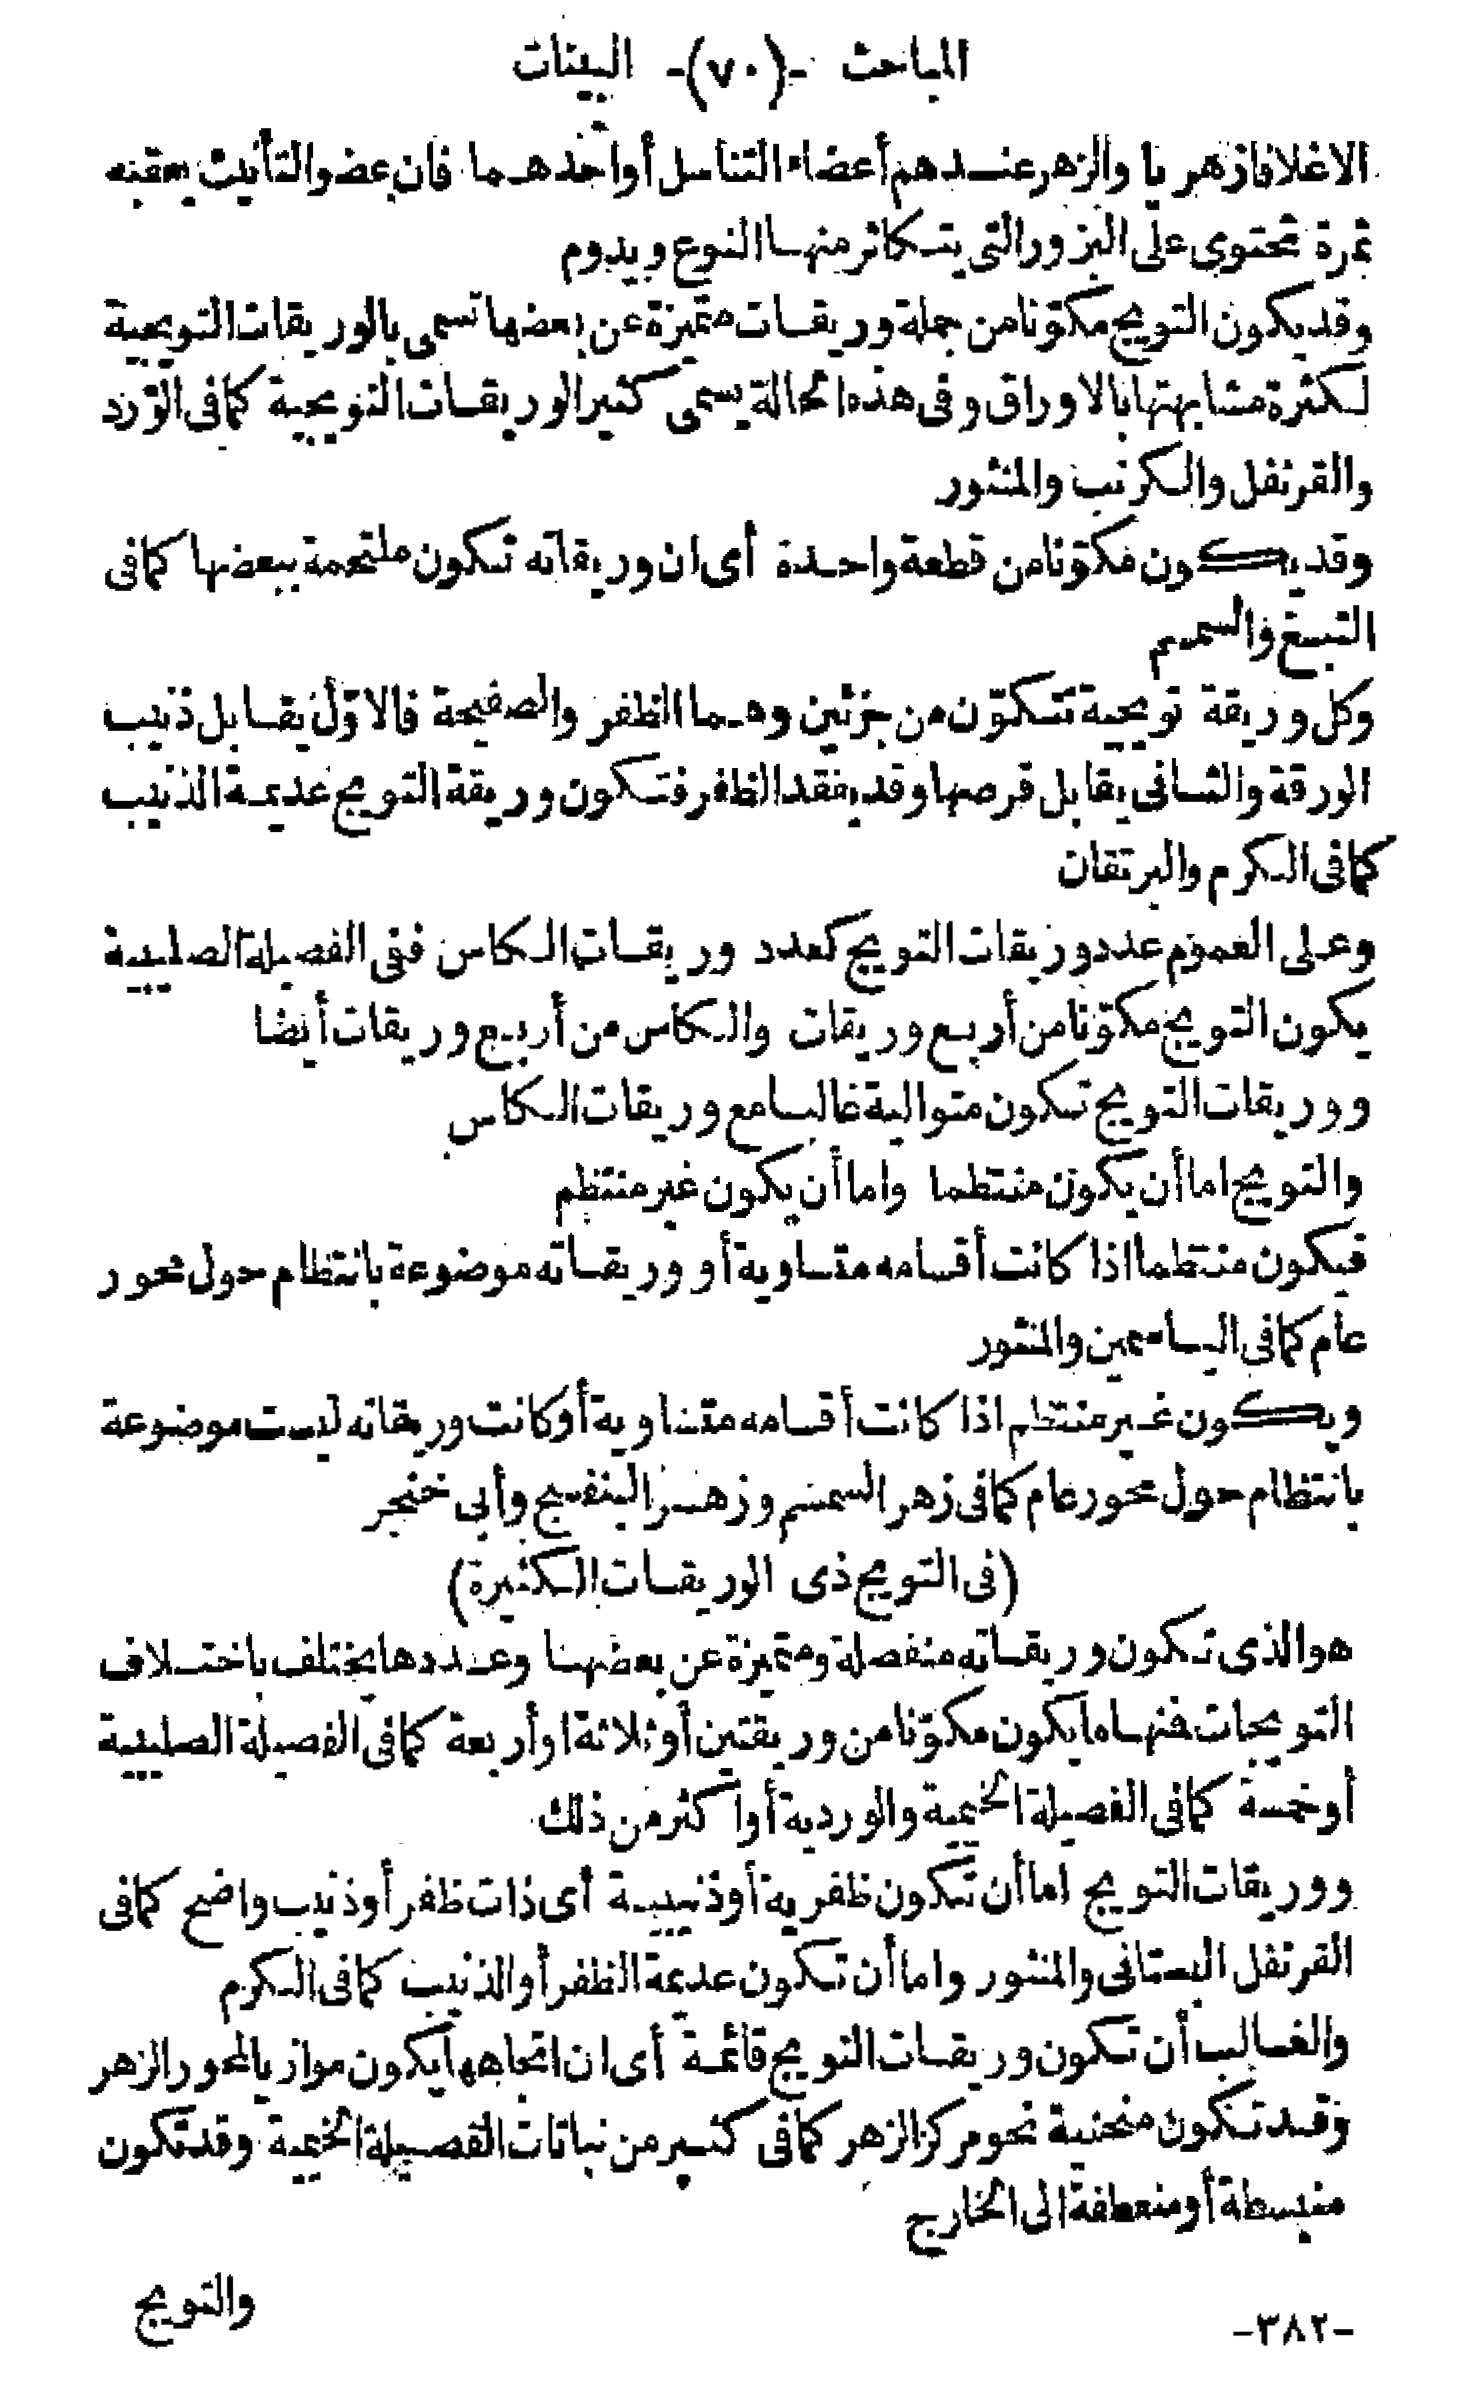 المباحث -(٧٠)- البينات
الاغلافا زهريا والزهر عندهم أعضاء التناسل أو احدهما فان عضو التأنيث يعقبه
ثمرة تحتوى على البزور التى يتكاثر منها النوع ويدوم
وقد يكون التويج مكوّنا من جملة وريقات متميزة عن بعضها تسمى بالوريقات التويجية
لكثرة مشابهتها بالاوراق وفى هذه الحالة يسمى كثير الوريقات التويجية كما فى الورد
والقرنفل والكرنب والمنثور
وقد يكون مكوّنا من قطعة واحدة أى ان وريقاته تكون ملتحمة ببعضها كما فى
التبغ والسمسم
وكل وريقة تويجية تتكوّن من جزئين وهما الظفر والصفيحة فالاوّل يقابل ذنيب
الورقة والثانى يقابل قرصها وقد يفقد الظفر فتكون وريقة التويج عديمة الذنيب
كما فى الكرم والبرتقان
وعلى العموم عدد وريقات التويج كعدد وريقات الكاس ففى الفصيلة الصليبية
يكون التويج مكوّنا من أربع وريقات والكاس من أربع وريقات أيضا
ووريقات التويج تكون متوالية غالبا مع وريقات الكاس
والتويج اما أن يكون منتظما واما أن يكون غير منتظم
فيكون منتظما اذا كانت أقسامه متساوية أو وريقاته موضوعة بانتظام حول محور
عام كما فى الياسمين والمنثور
ويكون غير منتظم اذا كانت أقسامه متساوية أو كانت وريقاته ليست موضوعة
بانتظام حول محور عام كما فى زهر السمسم وزهر البنفسج وأبى خنجر
(فى التويج ذى الوريقات الكثيرة)
هو الذى تكون وريقاته منفصلة ومتميزة عن بعضها وعددها يختلف باختلاف
التويجات فمنها ما يكون مكوّنا من وريقتين أو ثلاثة او أربعة كما فى الفصيلة الصليبية
أو خمسة كما فى الفصيلة الخيمية والوردية أو اكثر من ذلك
ووريقات التويج اما أن تكون ظفرية أو ذنيبية أى ذات ظفر أو ذنيب واضح كما فى
القرنفل البستانى والمنثور واما أن تكون عديمة الظفر أو الذنيب كما فى الكرم
والغالب أن تكون وريقات التويج قائمة أى ان اتجاهها يكون موازيا لمحور الزهر
وقد تكون منحنية نحو مركز الزهر كما فى كثير من نباتات الفصيلة الخيمية وقد تكون
منبسطة أو منعطفة الى الخارج
والتويج
-٣٨٢-